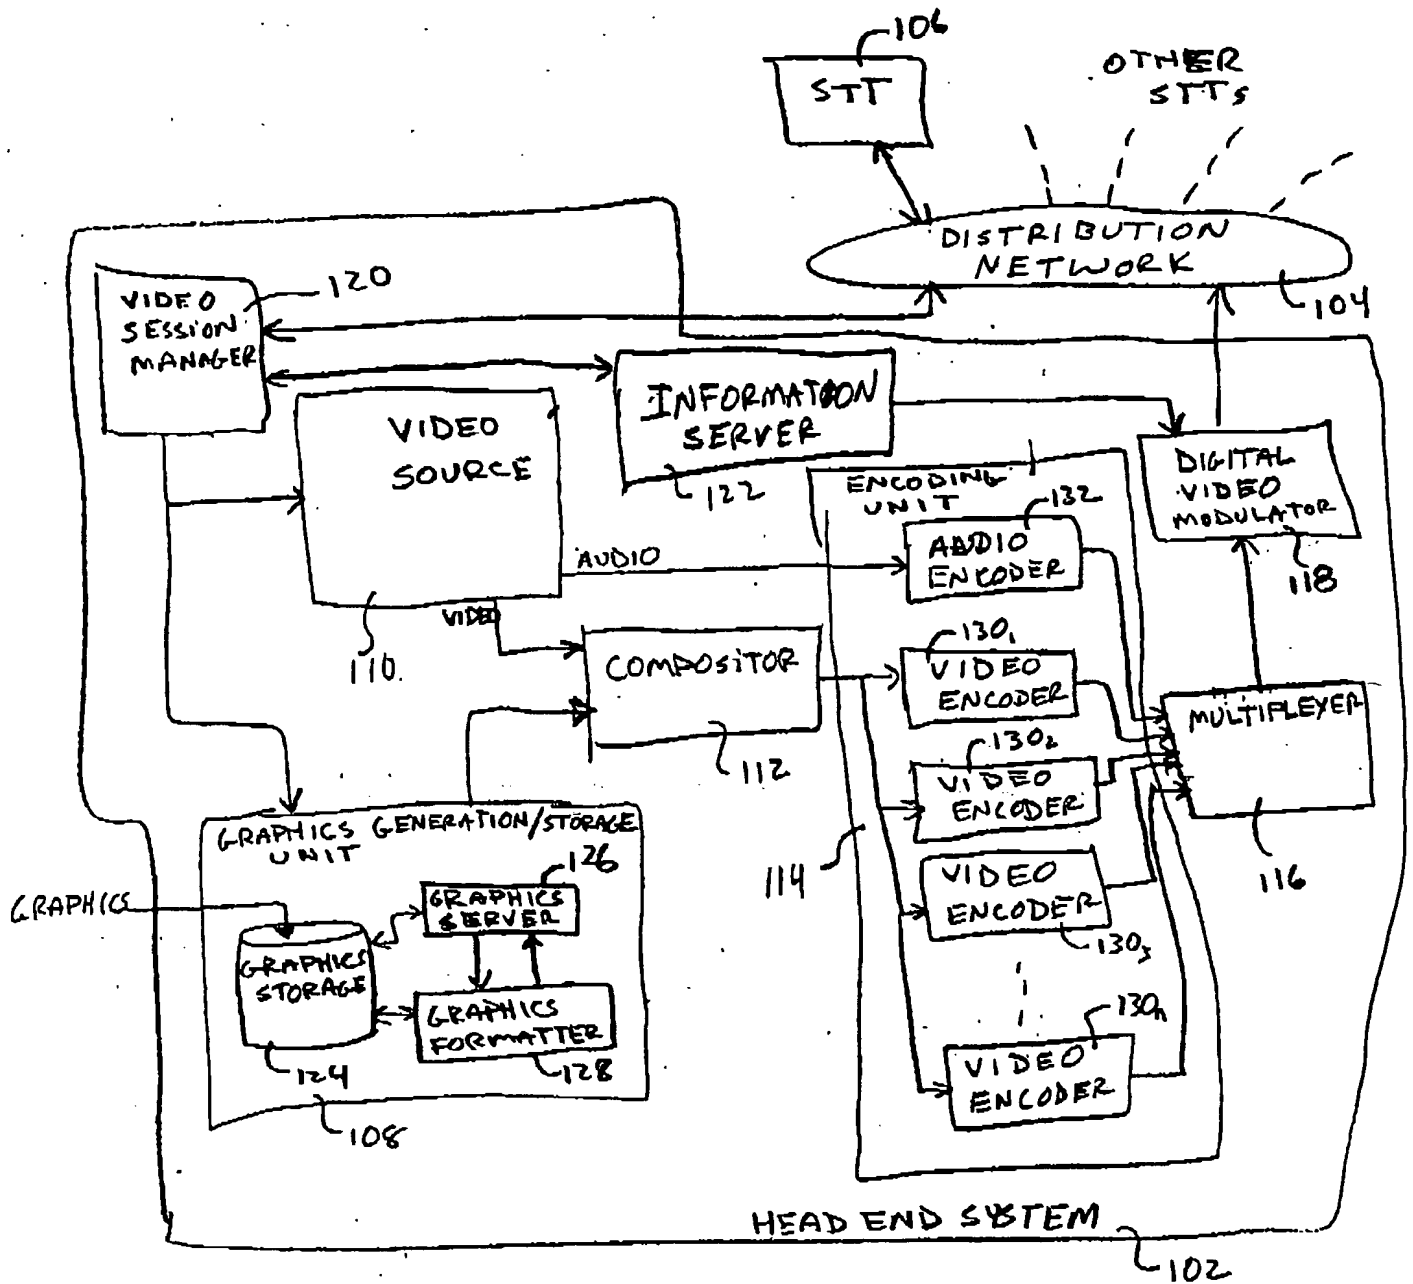 106
STT
OTHER
STTs
DISTRIBUTION
NETWORK
104
120
VIDEO
SESSION
MANAGER
VIDEO
SOURCE
INFORMATION
SERVER
122
DIGITAL
VIDEO
MODULATOR
118
ENCODING
UNIT
132
AUDIO
ENCODER
AUDIO
VIDEO
110
COMPOSITOR
112
130₁
VIDEO
ENCODER
130₂
VIDEO
ENCODER
MULTIPLEXER
116
114
VIDEO
ENCODER
130₃
130n
VIDEO
ENCODER
GRAPHICS GENERATION/STORAGE
UNIT
126
GRAPHICS
SERVER
GRAPHICS
GRAPHICS
STORAGE
124
GRAPHICS
FORMATTER
128
108
HEAD END SYSTEM
102